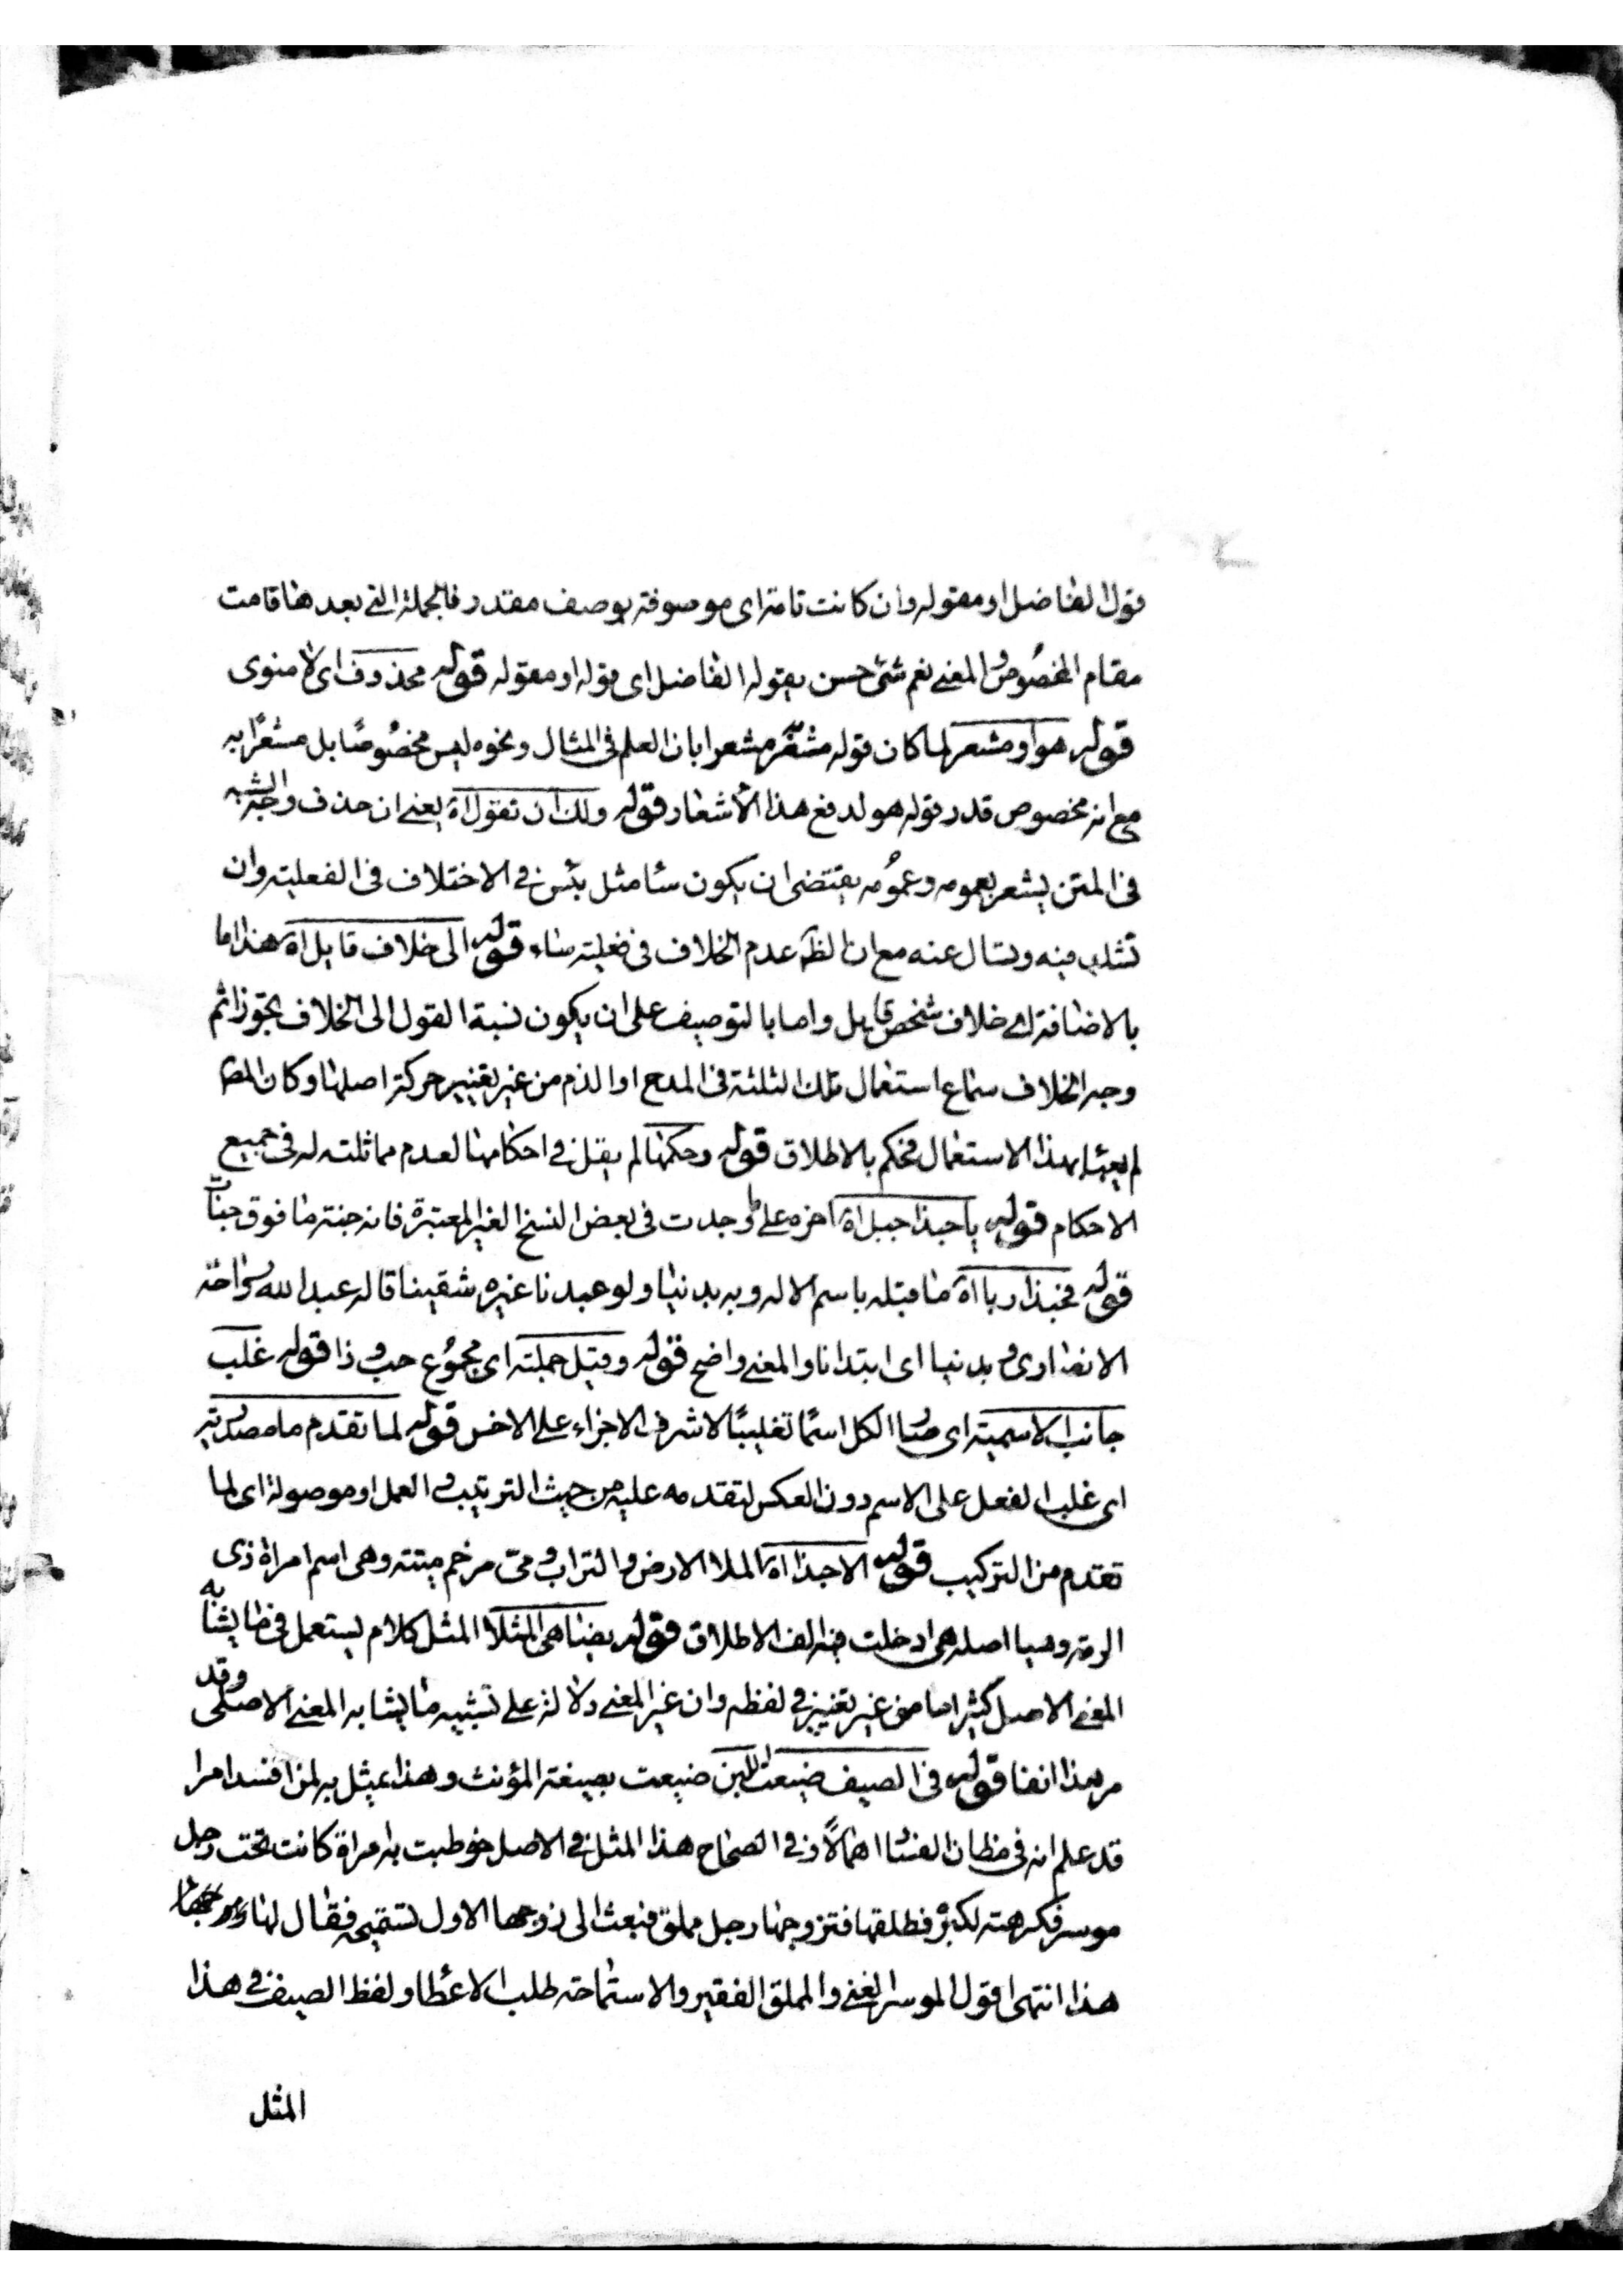 قول الفاضل او مقوله وان كانت تامة اى موصوفة بوصف مقدر فالجملة التى بعدها قامت
مقام المخصوص والمعنى نعم شئ حسن يقوله الفاضل اى قوله او مقوله قوله محذوف اى لا منوى
قوله هو او مشعر لما كان قوله مشعر مشعرا بان العلم فى المثال ونحوه ليس مخصوصا بل مشعرا به
مع انه مخصوص قدر قوله هو لدفع هذا الاشعار قوله ولك ان تقول اه يعنى ان حذف وجه الشبه
فى المتن يشعر بعمومه وعمومه يقتضى ان يكون ساء مثل بئس فى الاختلاف فى الفعلية وان
منه وتسال عنه مع ان الظ عدم الخلاف فى فعلية ساء قوله الى خلاف قايل اه هذا اما
بالاضافة اى خلاف شخص قايل واما بالتوصيف على ان يكون نسبة القول الى الخلاف تجوزا ثم
وجه الخلاف سماع استعمال تلك الثلثة فى المدح او الذم من غير تغيير حركة اصلها وكان المص
لم يعبأ بهذا الاستعمال فحكم بالاطلاق قوله وحكمها لم يقل فى احكامها لعدم مماثلته له فى جميع
الاحكام قوله يا حبذا جبل اه اخره على ما وجدت فى بعض النسخ الغير المعتبرة فانه جنة ما فوق جنات
قوله فحبذا ربا اه ما قبله باسم الاله وبه بدينا ولو عبدنا غيره شقينا قاله عبد الله بن رواحة
الانصارى وبدينا اى ابتدانا والمعنى واضح قوله وقيل جملته اى مجموع حب وذا قوله غلب
جانب الاسمية اى صار الكل اسما تغليبا لاشرف الاجزاء على الاخس قوله لما تقدم ما مصدرية
اى غلب الفعل على الاسم دون العكس لتقدمه عليه من حيث الترتيب والعمل او موصولة اى لما
تقدم من التركيب قوله الا حبذا اه الملا الارض والتراب ومى مرخم مية وهى اسم امراة ذى
الرمة وهيا اصله هى ادخلت فيه الف الاطلاق قوله يضاهى المثلا المثل كلام يستعمل فى ما يشابه
المعنى الاصل كثيرا ما من غير تغيير فى لفظه وان غير المعنى دلالة على تشبيه ما يشابه المعنى الاصلى وقد
مر هذا انفا قوله فى الصيف ضيعت اللبن ضيعت بصيغة المؤنث وهذا يمثل به لمن افسد امرا
قد علم انه فى مظان الفساد اهمالا وفى الصحاح هذا المثل فى الاصل خوطبت به امراة كانت تحت رجل
موسر فكرهته لكبره فطلقها فتزوجها رجل مملق فبعث الى زوجها الاول تستميحه فقال لها
هذا انتهى اقول الموسر الغنى والمملق الفقير والاستماحة طلب الاعطا ولفظ الصيف فى هذا
المثل